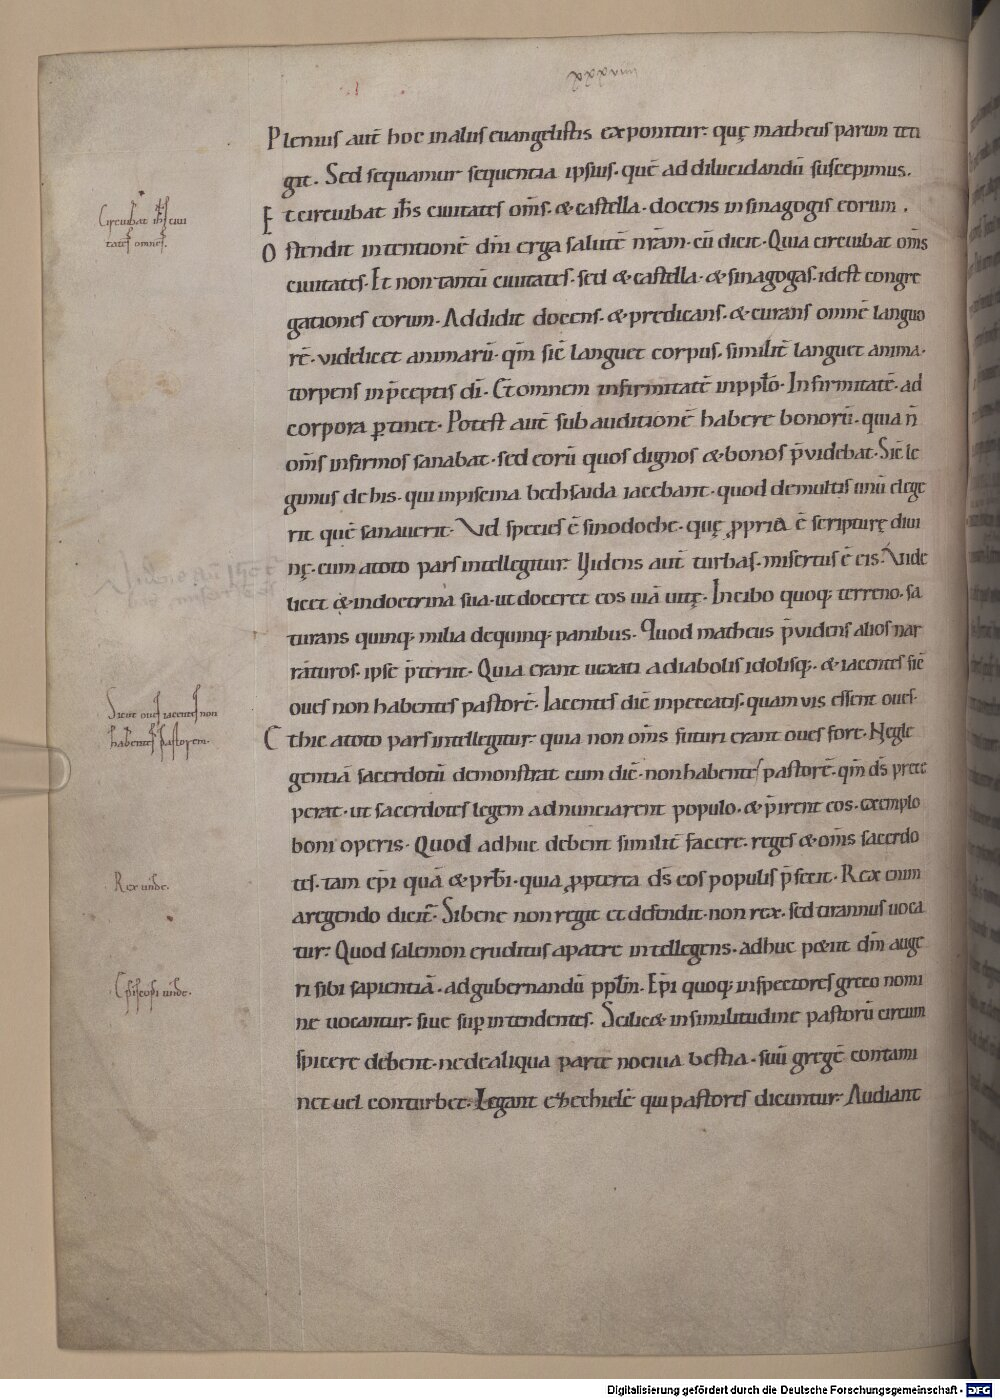 Plenius aut̄ hoc in alus euangelistis exponitur. quę matheus parum teti
git. Sed sequamur sequentia ipsius. quē ad dilucidandū suscepimus.
Circuibat ihs ciui
tates omnes.
Et circuibat ihs ciuitates om̄s. & castella. docens in sinagogis eorum.
Ostendit intentionē dn̄i erga salutē nr̄am. cū dicit. Quia circuibat om̄s
ciuitates. Et non tantū ciuitates. sed & castella. & sinagogas. idest congre
gationes eorum. Addidit docens. & predicans. & curans omnē languo
rē. videlicet animarū. qm̄ sic̄ languet corpus. similit̄ languet anima.
torpens in p̄ceptis dī. Et omnem infirmitatē in ppl̄o. Infirmitatē. ad
corpora ptinet. Potest aut̄ subauditionē habere bonorū. quia n̄
om̄s infirmos sanabat. sed eorū quos dignos & bonos p̄videbat. Sic̄ le
gimus de his. qui in piscina bethsaida iacebant. quod de multis unū elege
rit quē sanauerit. Vel species ē sinodoche. quę ppria ē scripturę diui
nę. cum a toto pars intellegitur. Videns aut̄ turbas. misertus ē eis. Vide
licet & in doctrina sua. ut doceret eos uiā uitę. In cibo quoq; terreno. sa
turans quinq; milia de quinq; panibus. Quod matheus p̄videns alios nar
raturos. ipse p̄terut. Quia erant uexati a diabolis idolisq;. & iacentes sic̄
Sicut oues iacentes non
habentes pastorem.
oues non habentes pastorē. Iacentes dic̄ in peccatis. quam vis essent oues.
Et hic a toto pars intellegitur. quia non om̄s futuri erant oues fore. Negle
gentiā sacerdotū demonstrat cum dic̄. non habentes pastorē. qm̄ ds̄ prece
perat. ut sacerdotes legem adnunciarent populo. & p̄irent eos. exemplo
boni operis. Quod adhuc debent similit̄ facere. reges & om̄s sacerdo
Rex unde.
tes. tam ep̄i quā & prb̄i. quia ppterea ds̄ eos populis p̄fecit. Rex enim
a regendo dicit̄. Si bene non regit et defendit. non rex. sed tirannus uoca
tur. Quod salemon eruditus a patre intellegens. adhuc petut dn̄m auge
Episcopi unde.
ri sibi sapientiā. ad gubernandū ppl̄m. Ep̄i quoq; inspectores greco nomi
ne uocantur. siue supintendentes. Scilicet in similitudine pastorū circum
spicere debent. ne de aliqua parte nociua bestia. suū gregē contami
net uel conturbet. Legant ezechielē qui pastores dicuntur. Audiant
Digitalisierung gefördert durch die Deutsche Forschungsgemeinschaft - DFG